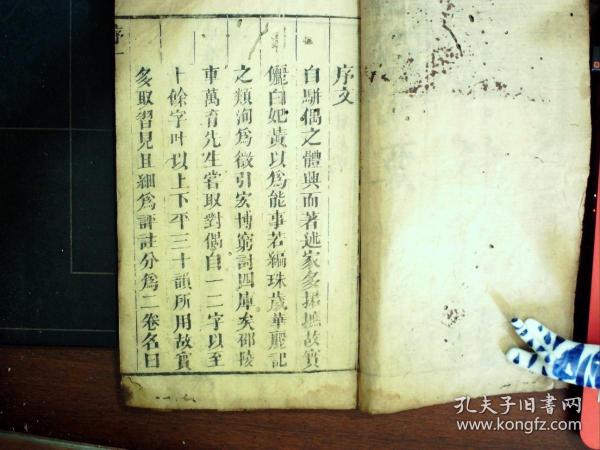 序文
自駢偶之體興而著述家多搌摭故實
儷白妃黃以爲能事若編珠歲華麗記
之類洵爲徵引宏博窮討四庫矣邵陵
車萬育先生嘗取對偶自一二字以至
十餘字叶以上下平三十韻所用故實
多取習見且細爲評註分爲二卷名曰
孔夫子旧书网
www.kongfz.com